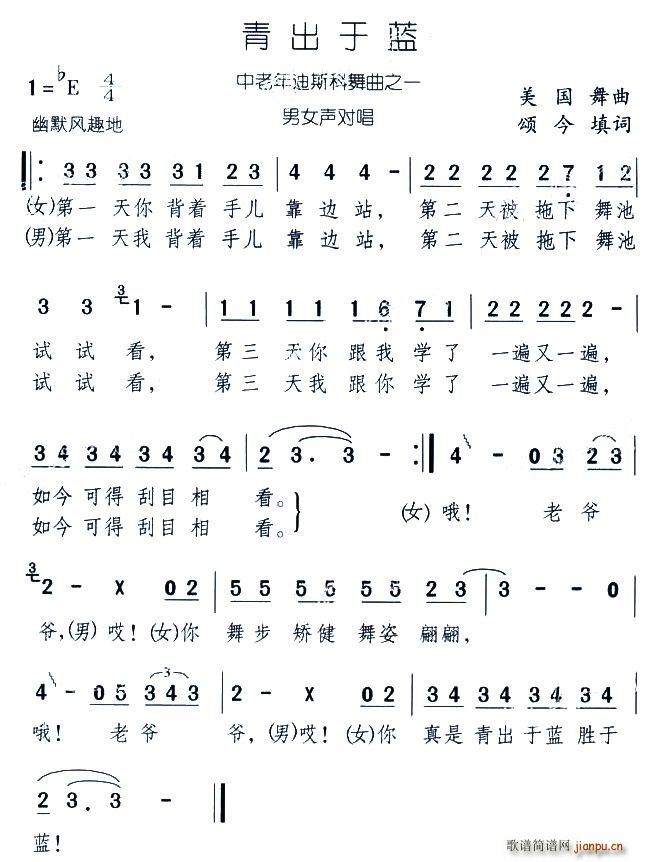 青出于蓝
中老年迪斯科舞曲之一
1=♭E 4/4
美国 舞曲
幽默风趣地
男女声对唱
颂今 填词
3 3 3 3 3 1 2 3 | 4 4 4 - | 2 2 2 2 2 7 1 2
(女)第一 天你 背着 手儿 靠 边 站, 第二 天被 拖下 舞池
(男)第一 天我 背着 手儿 靠 边 站, 第二 天被 拖下 舞池
3 3 3 1 - | 1 1 1 1 1 6 7 1 | 2 2 2 2 2 -
试 试 看, 第三 天你 跟我 学了 一遍又一遍,
试 试 看, 第三 天我 跟你 学了 一遍又一遍,
3 4 3 4 3 4 3 4 | 2 3. 3 - :| 4 - 0 3 2 3
如今 可得 刮目 相 看。 (女)哦! 老 爷
如今 可得 刮目 相 看。
3 2 - X 0 2 | 5 5 5 5 5 5 2 3 | 3 - - 0
爷,(男)哎!(女)你 舞步 矫健 舞姿 翩翩,
4 - 0 5 3 4 3 | 2 - X 0 2 | 3 4 3 4 3 4 3 4
3
哦! 老 爷 爷,(男)哎!(女)你 真是 青出 于蓝 胜于
2 3. 3 -
蓝!
歌谱简谱网
jianpu.cn